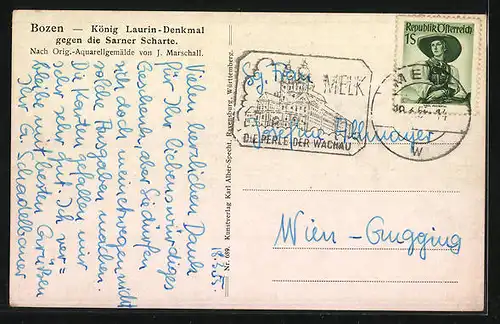 Bozen — König Laurin-Denkmal
gegen die Sarner Scharte.
Nach Orig.-Aquarellgemälde von J. Marschall.
Vielen herzlichen Dank
für Ihr liebenswürdiges
Geschenk, aber Sie dürfen
sich doch meinetwegen nicht
solche Ausgaben machen.
Die Karten gefallen mir
sehr sehr gut. Ich ver=
bleibe mit besten Grüssen
Ihr G. Schadelbauer
Nr. 689. Kunstverlag Karl Alber-Specht, Ravensburg, Württemberg.
Sg. Frau
Josefine Allmayer
Wien-Gugging
MELK
DIE PERLE DER WACHAU
Republik Österreich
1S
MELK
W